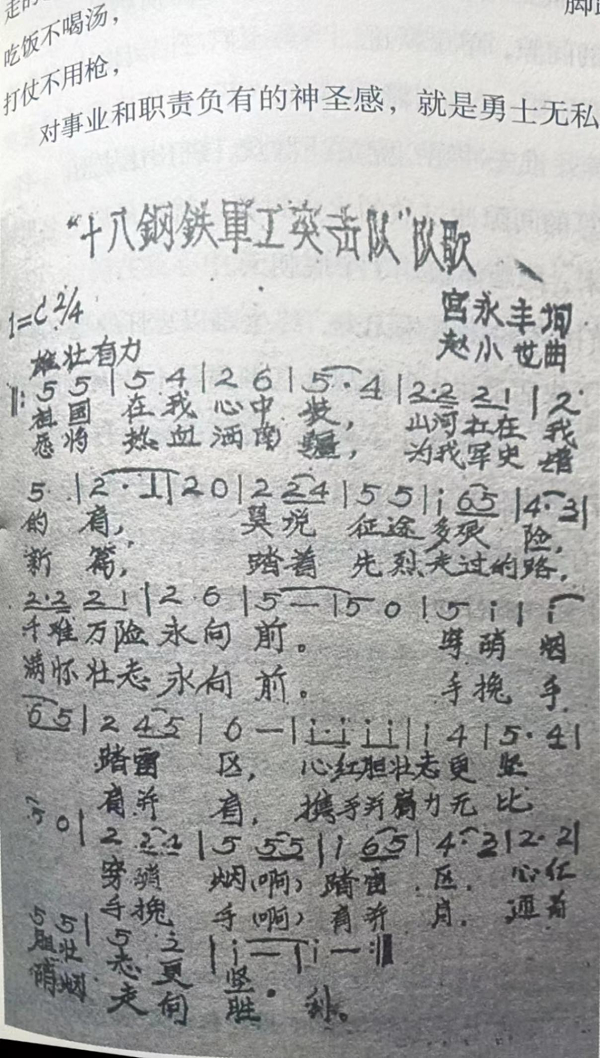 走的
脚踏
吃饭不喝汤，
打仗不用枪，
对事业和职责负有的神圣感，就是勇士无私
“十八鋼鉄軍工突击队”队歌
1=C 2/4
宫永丰词
赵小世曲
雄壮有力
‖: 5 5 | 5 4 | 2 6 | 5· 4 | 2·2 2 1 | 2
祖国 在我 心中 装， 山河扛在 我
愿将 热血 洒南 疆， 为我军史 增
5 | 2· 1 | 2 0 | 2 2 4 | 5 5 | i 6 5 | 4· 3 |
的 肩， 莫说 征途 多艰 险，
新 篇， 踏着 先烈 走过的 路，
2·2 2 1 | 2 6 | 5 — | 5 0 | 5 i | i
千难万险 永向 前。 穿硝 烟
满怀壮志 永向 前。 手挽 手
6 5 | 2 4 5 | 6 — | i·i i i | i 4 | 5· 4 |
踏雷 区， 心红胆壮 志更 坚
肩并 肩， 携手并肩 力无 比
5 0 | 2 2 4 | 5 5 5 | i 6 5 | 4· 3 | 2· 2 |
穿硝 烟(啊) 踏雷 区， 心红
手挽 手(啊) 肩并 肩，
5 5 | 5 | i — | i — :‖
胆壮 志更 坚。
硝烟 走向 胜 利。